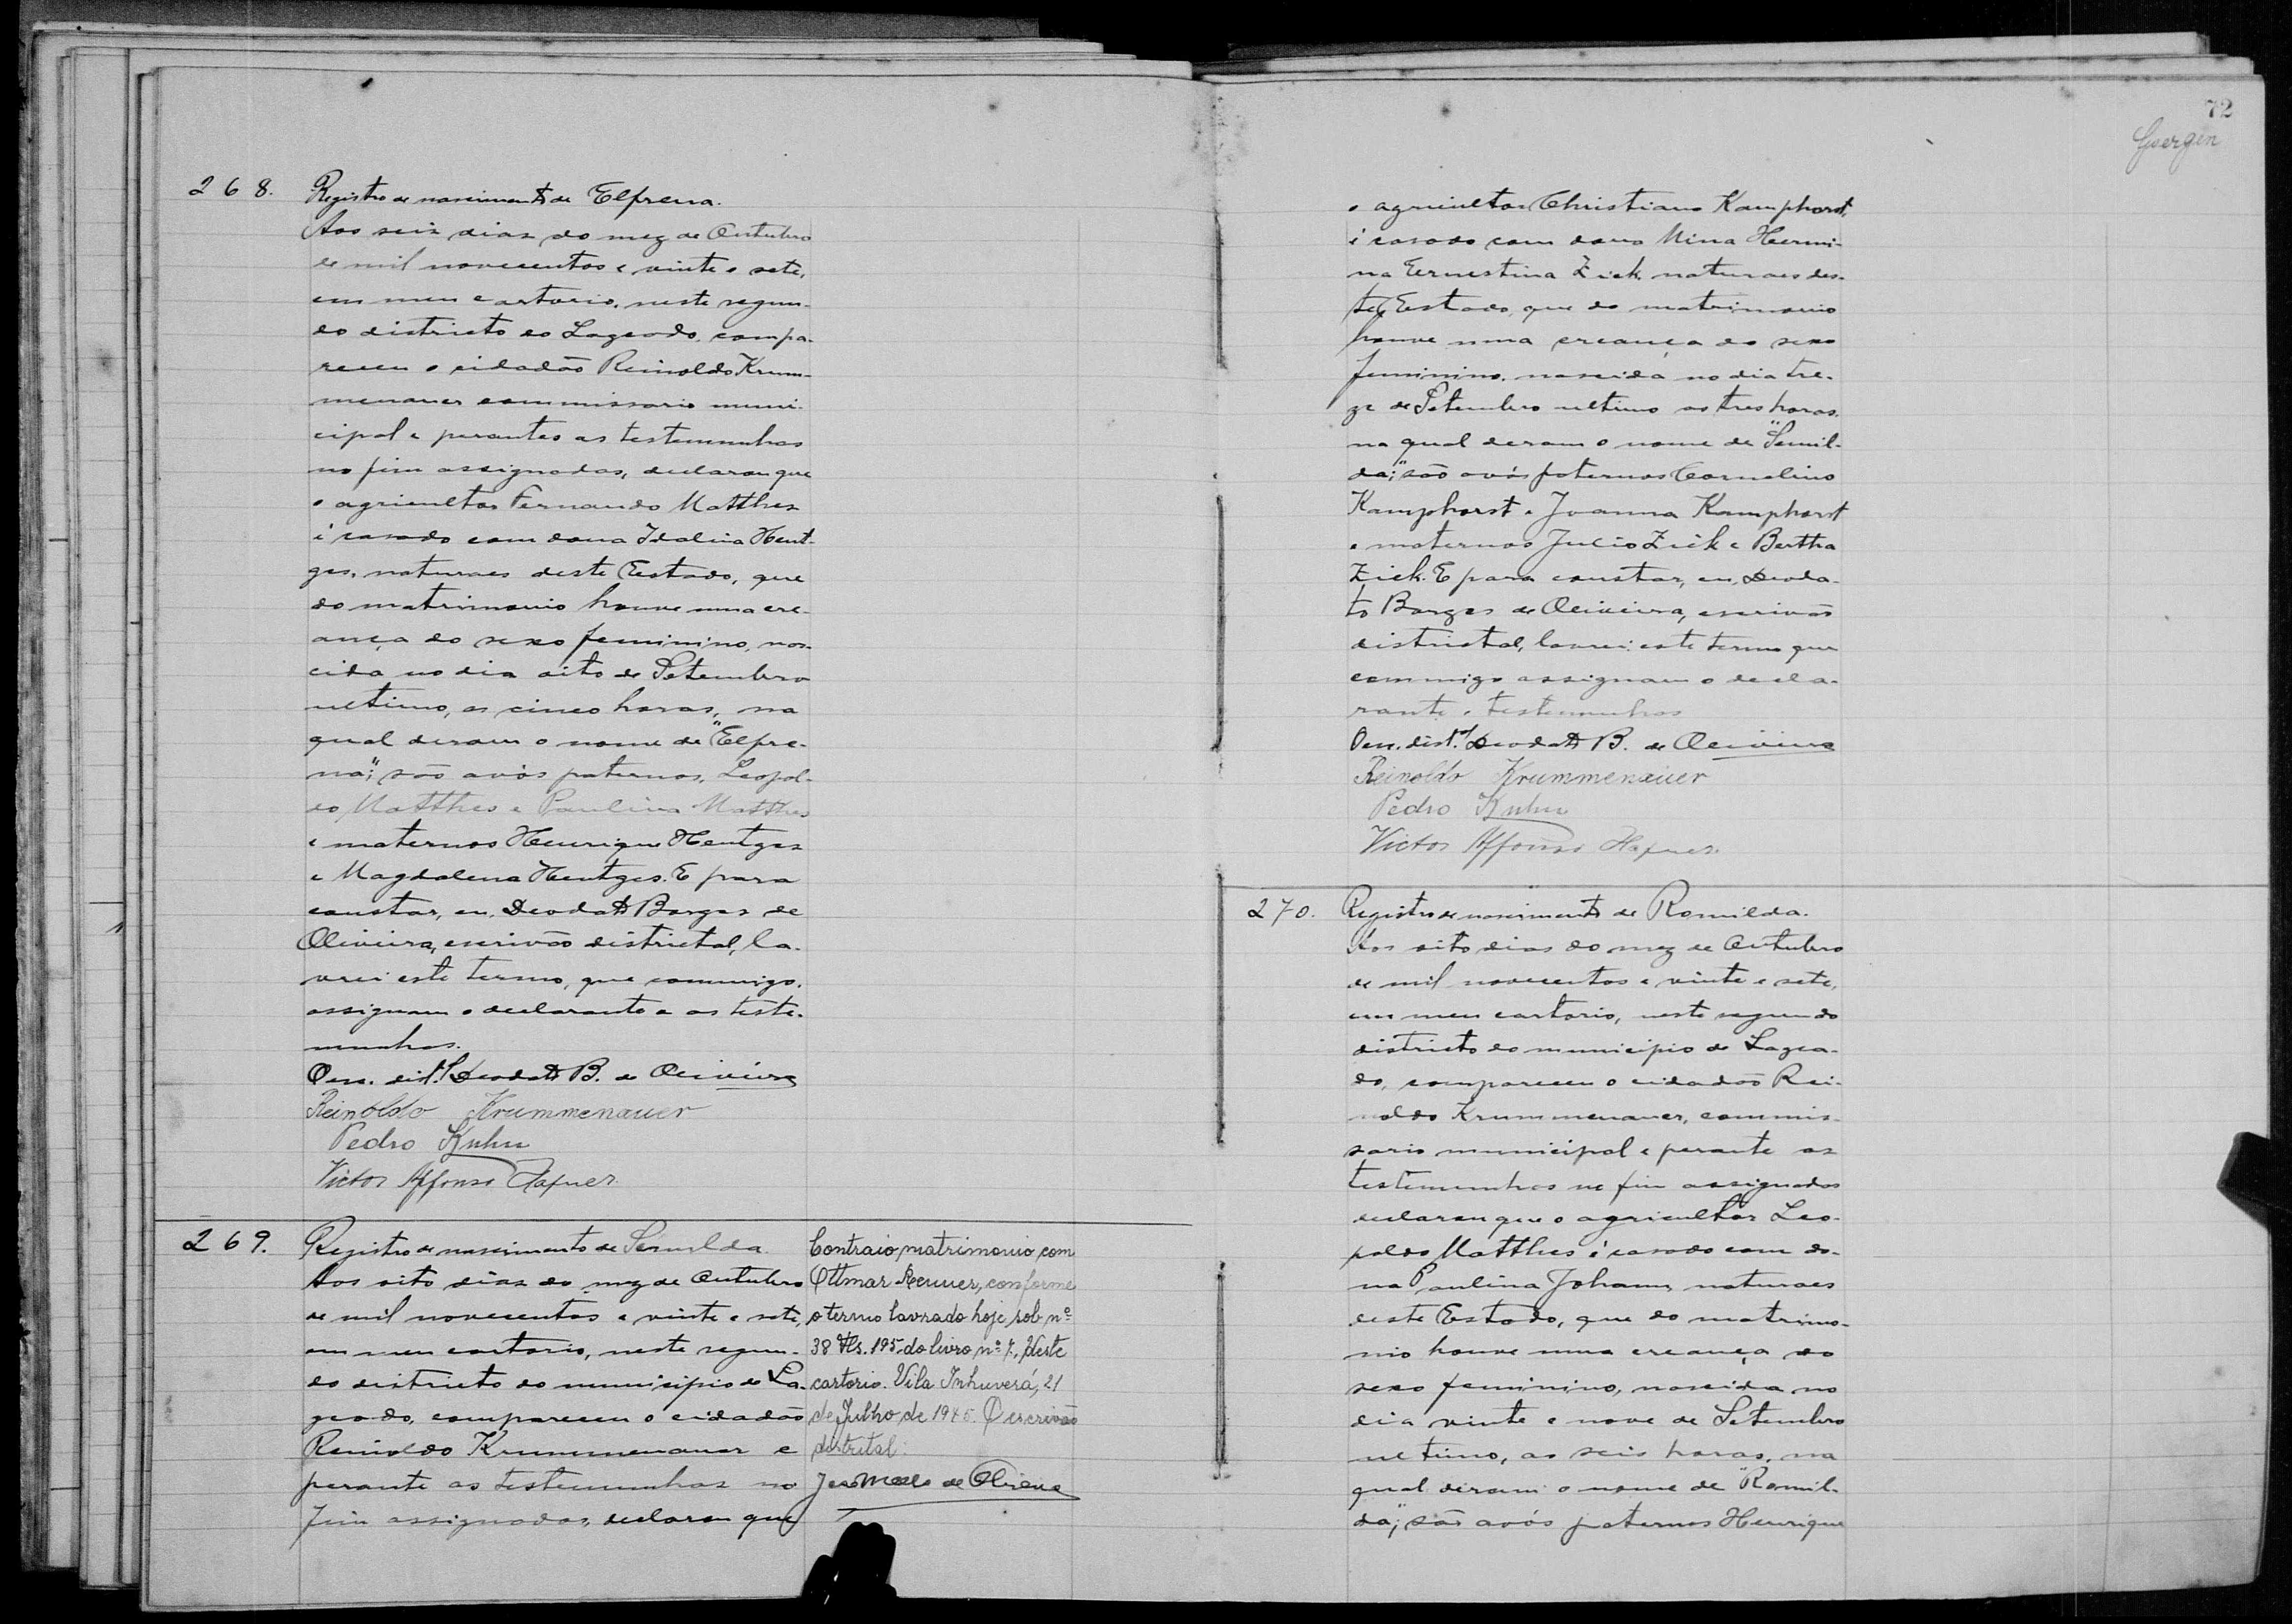 268.
Registro de nascimento de Elfrena.
Aos seis dias do mez de Outubro
de mil novecentos e vinte e sete,
em meu cartorio, neste segun-
do districto do Lageado, compa-
receu o cidadão Reinoldo Krum-
menauer commissario muni-
cipal e perantes as testemunhas
no fim assignadas, declarou que
o agricultor Fernando Matthes
é casado com dona Idalina Hent-
ges, naturaes deste Estado, que
do matrimonio houve uma cre-
ança do sexo feminino, nas-
cida no dia oito de Setembro
ultimo, as cinco horas, na
qual deram o nome de "Elfre-
na"; são avós paternos, Leopol-
do Matthes e Paulina Matthes
e maternos Henrique Hentges
e Magdalena Hentges. E para
constar, eu, Deodato Borges de
Oliveira, escrivão districtal, la-
vrei este termo, que commigo,
assignam o declarante e as teste-
munhas.
O esc. dist.al Deodato B. de Oliveira
Reinoldo Krummenauer
Pedro Kuhn
Victor Affonso Hafner
269.
Registro de nascimento de Semilda
Aos oito dias do mez de Outubro
de mil novecentos e vinte e sete,
em meu cartorio, neste segun-
do districto do municipio de La-
geado, compareceu o cidadão
Reinoldo Krummenauer e
perante as testemunhas no
fim assignadas, declarou que
Contraio matrimonio com
Ottmar Renner, conforme
o termo lavrado hoje, sob nº
38 Fls. 195 do livro nº 7, deste
cartorio. Vila Inhuverá, 21
de Julho de 1945. O escrivão
distrital:
de Oliveira
72
Goergen
o agricultor Christiano Kamphorst,
é casado com dona Mina Hermi-
na Eernestina Zick naturaes des-
te Estado, que do matrimonio
houve uma creança do sexo
feminino, nascida no dia tre-
ze de Setembro ultimo as tres horas,
na qual deram o nome de "Semil-
da"; são avós paternos Cornelino
Kamphorst e Joanna Kamphorst
e maternos Julio Zick e Bertha
Zick. E para constar, eu, Deoda-
to Borges de Oliveira, escrivão
districtal, lavrei este termo que
commigo assignam o decla-
rante e testemunhas
O esc. dist.al Deodato B. de Oliveira
Reinoldo Krummenauer
Pedro Kuhn
Victor Affonso Hafner
270.
Registro de nascimento de Romilda.
Aos oito dias do mez de Outubro
de mil novecentos e vinte e sete,
em meu cartorio, neste segundo
districto do municipio de Lagea-
do, compareceu o cidadão Rei-
noldo Krummenauer, commis-
sario municipal e perante as
testemunhas no fim assignadas
declarou que o agricultor Leo-
poldo Matthes é casado com do-
na Paulina Johann, naturaes
deste Estado, que do matrimo-
nio houve uma creança do
sexo feminino, nascida no
dia vinte e nove de Setembro
ultimo, as seis horas, na
qual deram o nome de "Romil-
da"; são avós paternos Henrique